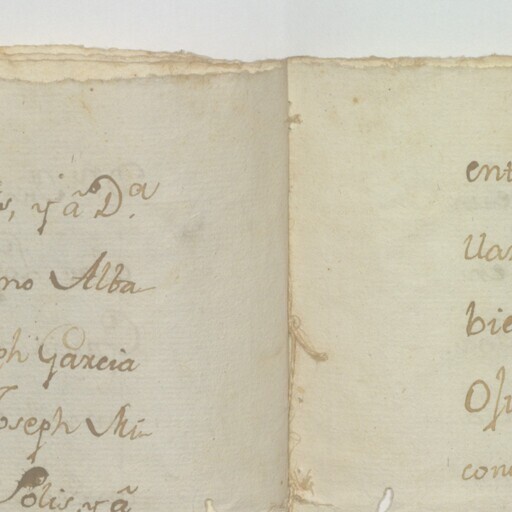 s, y â D.ª
no Alba-
ph Garcia
oseph Mi-
Solis, y â
ent
llar
bie
Osu
con